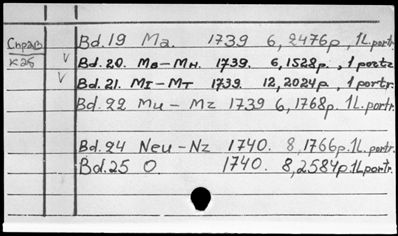 Bd. 19 Ma. 1739 6, 2476p., 1L. portr.
Справ √ Bd. 20. MB–MH. 1739. 6, 1528p., 1 portr
каб √ Bd. 21. MI–MT 1739. 12, 2024p., 1 portr.
Bd. 22 Mu–Mz 1739 6, 1768p. 1L. portr.
Bd. 24 Neu–Nz 1740. 8, 1766p. 1L. portr.
Bd. 25 O 1740. 8, 2584p. 1L. portr.